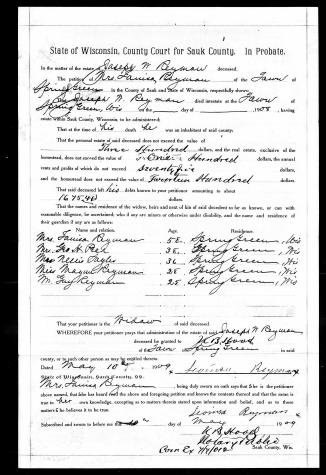 State of Wisconsin, County Court for Sauk County. In Probate.
In the matter of the estate Joseph W. Reyman deceased.
The petition of Mrs. Louisa Reyman of the Town
Spring Green, in the County of Sauk and State of Wisconsin, respectfully shows:
Joseph W. Reyman died intestate at the Town
Spring Green, Wis on the day of 1908 having
estate within Sauk County, Wisconsin, to be administered;
That at the time of his death he was an inhabitant of said county.
That the personal estate of said deceased does not exceed the value of
Three Hundred dollars, and the real estate, exclusive of the
homestead, does not exceed the value of Hundred dollars, the annual
rents and profits of which do not exceed Seventy five dollars,
and the homestead does not exceed the value of Fourteen Hundred dollars.
That said deceased left his debts known to your petitioner amounting to about
dollars.
That the names and residence of the widow, heirs and next of kin of said decedent so far as known, or can with
reasonable diligence, be ascertained, who if any are minors or otherwise under disability, and the name and residence of
their guardian if any are as follows:
Name and relation. Residence.
Mrs. Louisa Reyman 58 Spring Green, Wis
Mrs. 38 Spring Green, Wis
Mrs Nellie 36 Spring Green, Wis
Miss Reyman 28 Spring Green, Wis
M. Guy Reyman 25 Spring Green, Wis
That your petitioner is the Widow of said deceased.
WHEREFORE your petitioner prays that administration of the estate of said Joseph W. Reyman
deceased be granted to K. B. Hood
of Town Spring Green in said
county, or to such other person as may be entitled thereto.
Dated May 10 1909
Louisa Reyman
State of Wisconsin, Sauk County, ss.
Mrs. Louisa Reyman, being duly sworn on oath says that she is the petitioner
above named, that she has heard read the above and foregoing petition and knows the contents thereof and that the same is
true to her own knowledge, excepting as to matters therein stated upon information and belief, and as to those
matters she believes it to be true.
Louisa Reyman
Subscribed and sworn to before me day of May 1909
K. B. Hood
Notary Public
Sauk County, Wis.